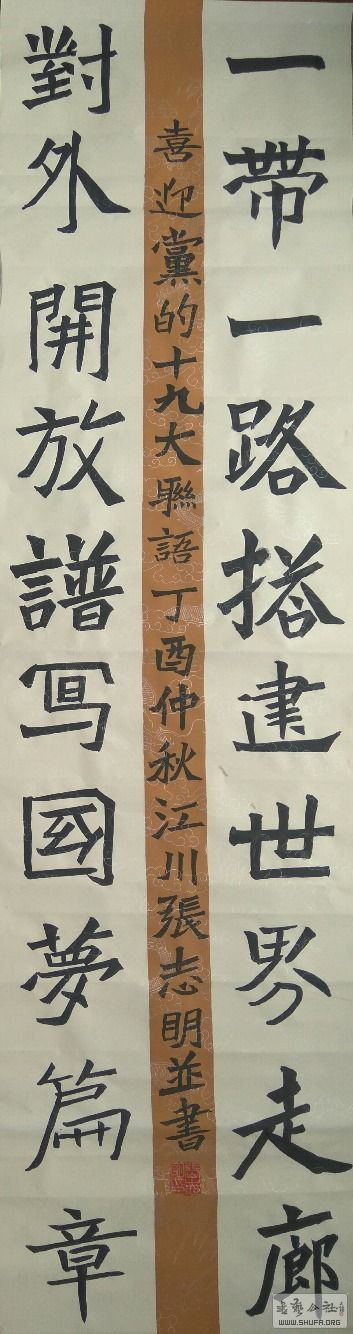 一帶一路搭建世界走廊
喜迎黨的十九大聯語丁酉仲秋江川張志明並書
對外開放譜寫國夢篇章
WWW.SHUFA.ORG